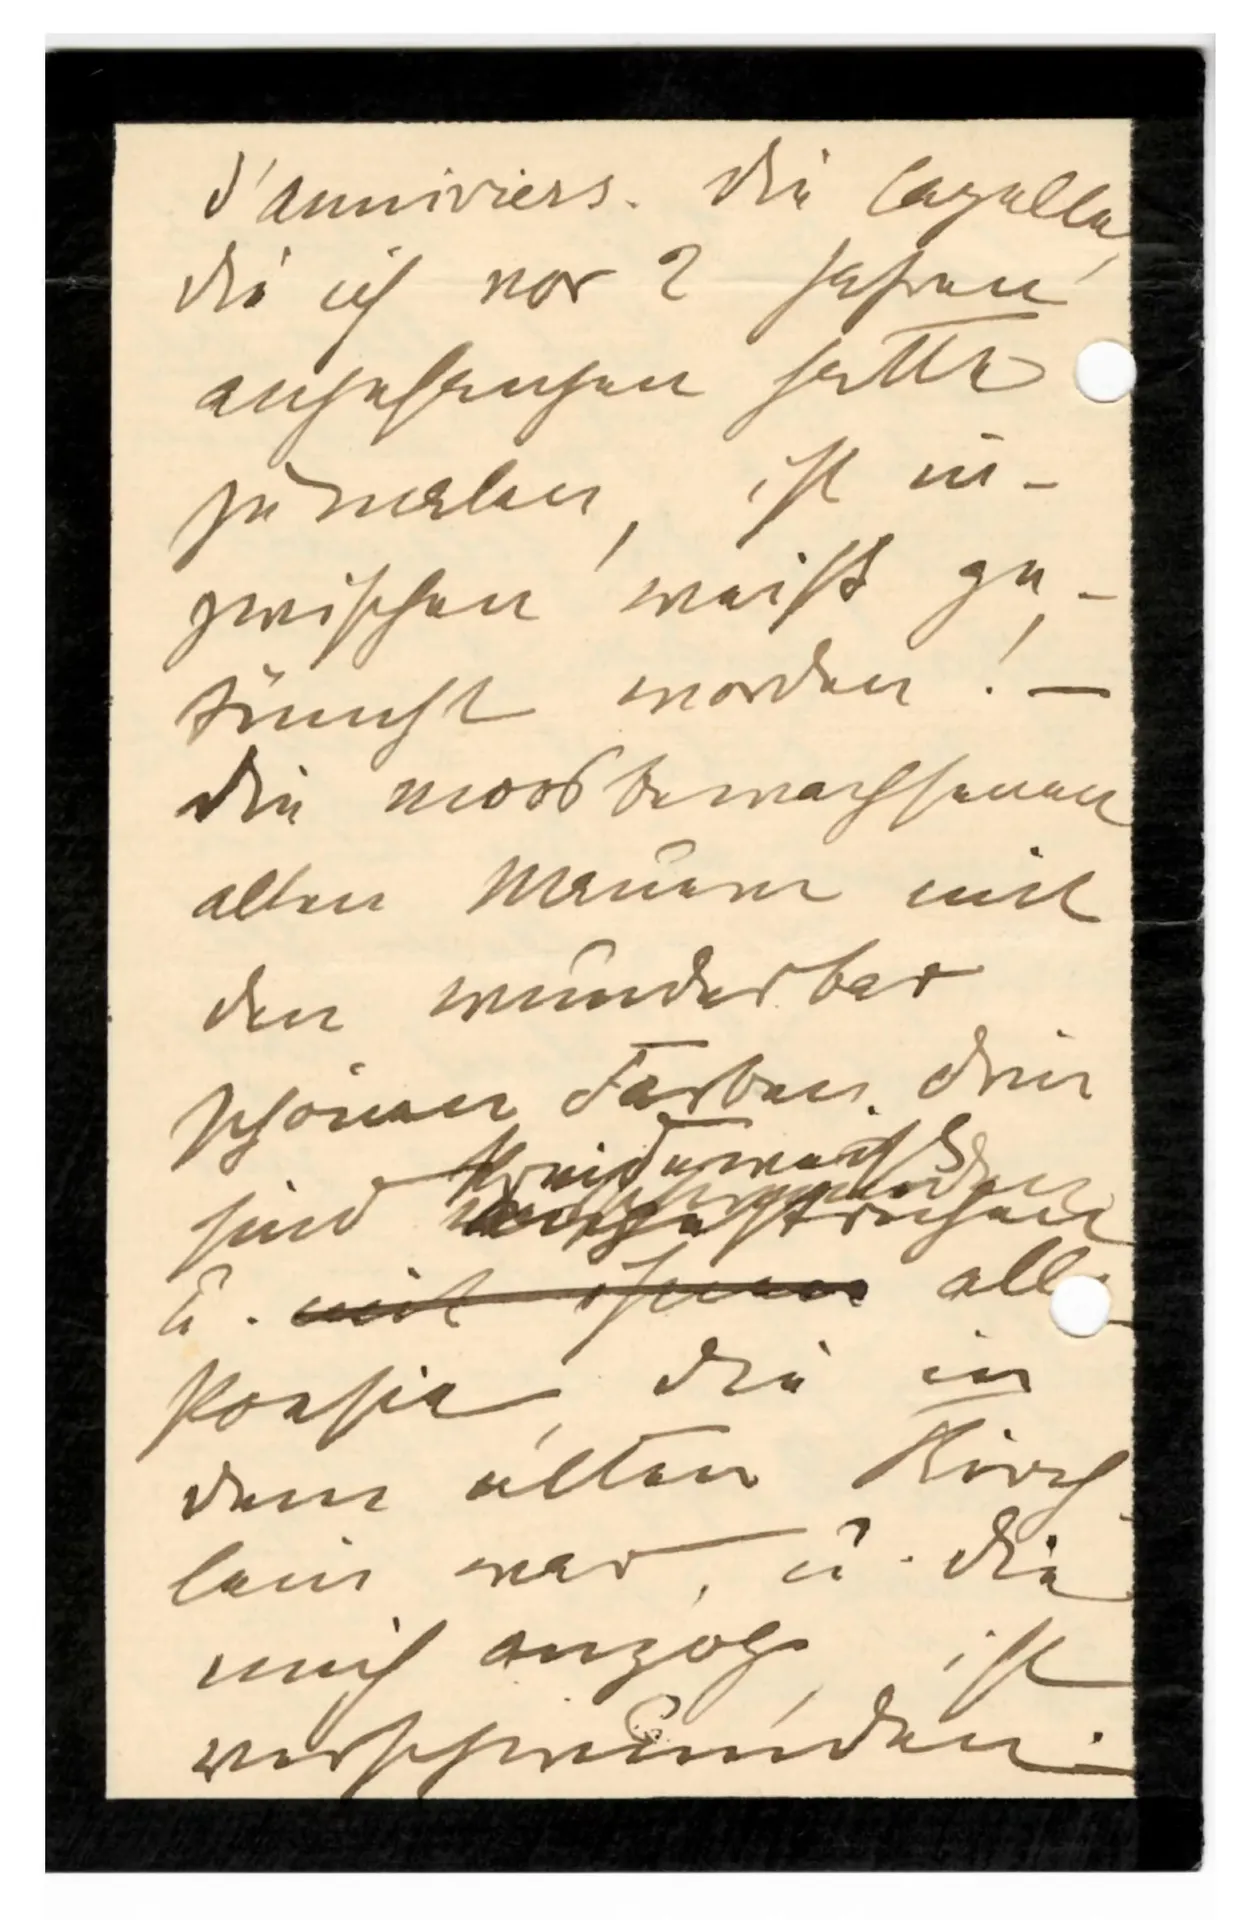 d'Anniviers. Die Capelle,
die ich vor 2 Jahren
angefangen hatte
zu malen, ist in-
zwischen weiss ge-
tüncht worden! —
Die moosbewachsenen
alten Mauern mit
den wunderbar
schönen Farben drin
sind
u. mit ihnen alle
Poesie, die in
dem alten Kirch
lein war, u. die
mich anzog, ist
verschwunden.